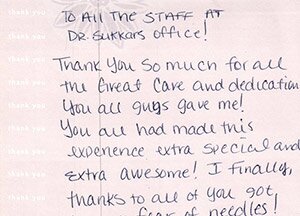 To All The STAFF AT
DR. SUKKARS office!
Thank You so much for all
the Great Care and dedication
You all guys gave me!
You all had made this
experience extra special and
extra awesome! I finally,
thanks to all of you got,
fear of needles!
thank you
thank you
thank you
thank you
thank you
thank you
thank you